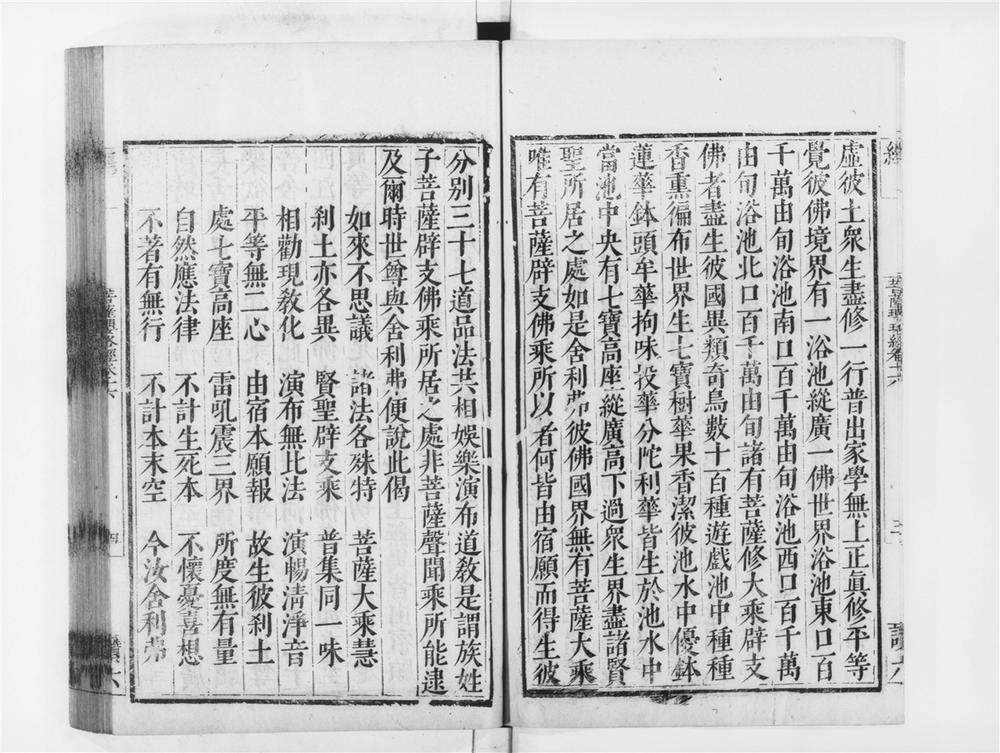 虛彼土衆生盡修一行普出家學無上正眞修平等
覺彼佛境界有一浴池縱廣一佛世界浴池東口百
千萬由旬浴池南口百千萬由旬浴池西口百千萬
由旬浴池北口百千萬由旬諸有菩薩修大乘辟支
佛者盡生彼國異類奇鳥數十百種遊戲池中種種
香熏徧布世界生七寶樹華果香潔彼池水中優鉢
蓮華鉢頭牟華拘味投華分陀利華皆生於池水中
當池中央有七寶高座縱廣高下過衆生界盡諸賢
聖所居之處如是舍利弗彼佛國界無有菩薩大乘
唯有菩薩辟支佛乘所以者何皆由宿願而得生彼
分别三十七道品法共相娛樂演布道教是謂族姓
子菩薩辟支佛乘所居之處非菩薩聲聞乘所能逮
及爾時世尊與舍利弗便說此偈
如來不思議 諸法各殊特 菩薩大乘慧
刹土亦各異 賢聖辟支乘 普集同一味
相勸現教化 演布無比法 演暢清淨音
平等無二心 由宿本願報 故生彼刹土
處七寶高座 雷吼震三界 所度無有量
自然應法律 不計生死本 不懷憂喜想
不著有無行 不計本末空 今汝舍利弗